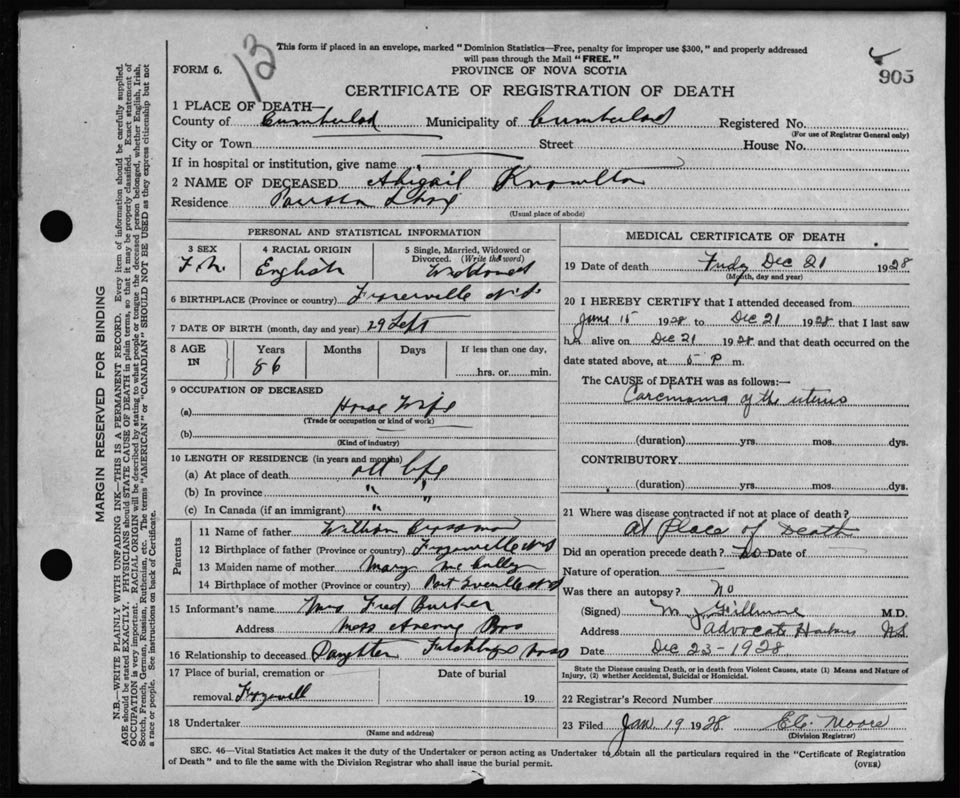 13
This form if placed in an envelope, marked "Dominion Statistics—Free, penalty for improper use $300," and properly addressed
will pass through the Mail "FREE."
905
FORM 6.
PROVINCE OF NOVA SCOTIA
CERTIFICATE OF REGISTRATION OF DEATH
1 PLACE OF DEATH—
County of Cumberland Municipality of Cumberland Registered No.
(For use of Registrar General only)
City or Town Street House No.
If in hospital or institution, give name
2 NAME OF DECEASED Abigail Knowlton
Residence Shore
(Usual place of abode)
PERSONAL AND STATISTICAL INFORMATION
3 SEX 4 RACIAL ORIGIN 5 Single, Married, Widowed or
Divorced. (Write the word)
English Widowed
6 BIRTHPLACE (Province or country) N.S.
7 DATE OF BIRTH (month, day and year) 29 Sept
8 AGE IN Years Months Days If less than one day,
86 hrs. or min.
9 OCCUPATION OF DECEASED
(a) House Wife
(Trade or occupation or kind of work)
(b)
(Kind of industry)
10 LENGTH OF RESIDENCE (in years and months)
(a) At place of death all life
(b) In province " "
(c) In Canada (if an immigrant) "
Parents
11 Name of father William
12 Birthplace of father (Province or country) N.S.
13 Maiden name of mother Mary
14 Birthplace of mother (Province or country) Port Greville N.S.
15 Informant's name Mrs Fred
Address Mass
16 Relationship to deceased Daughter Mass
17 Place of burial, cremation or Date of burial
removal 19
18 Undertaker
(Name and address)
MEDICAL CERTIFICATE OF DEATH
19 Date of death Friday Dec 21 1928
(Month, day and year)
20 I HEREBY CERTIFY that I attended deceased from
June 15 1928 to Dec 21 1928 that I last saw
h alive on Dec 21 1928 and that death occurred on the
date stated above, at 5 P m.
The CAUSE of DEATH was as follows:—
Carcinoma of the uterus
(duration) yrs. mos. dys.
CONTRIBUTORY
(duration) yrs. mos. dys.
21 Where was disease contracted if not at place of death?
At Place of Death
Did an operation precede death? no Date of
Nature of operation
Was there an autopsy? No
(Signed) M J Fillmore M.D.
Address Advocate Harbour N.S.
Date Dec 23-1928
State the Disease causing Death, or in death from Violent Causes, state (1) Means and Nature of
Injury, (2) whether Accidental, Suicidal or Homicidal.
22 Registrar's Record Number
23 Filed Jan. 19 1928 Moore
(Division Registrar)
SEC. 46—Vital Statistics Act makes it the duty of the Undertaker or person acting as Undertaker to obtain all the particulars required in the "Certificate of Registration
of Death" and to file the same with the Division Registrar who shall issue the burial permit.
(OVER)
MARGIN RESERVED FOR BINDING
N.B.—WRITE PLAINLY WITH UNFADING INK—THIS IS A PERMANENT RECORD. Every item of information should be carefully supplied.
AGE should be stated EXACTLY. PHYSICIANS should STATE CAUSE OF DEATH in plain terms, so that it may be properly classified. Exact statement of
OCCUPATION is very important. RACIAL ORIGIN will be described by stating to what people or tongue the deceased person belonged, whether English, Irish,
Scotch, French, German, Russian, Ruthenian, etc. The terms "AMERICAN" or "CANADIAN" SHOULD NOT BE USED as they express citizenship but not
a race or people. See instructions on back of Certificate.